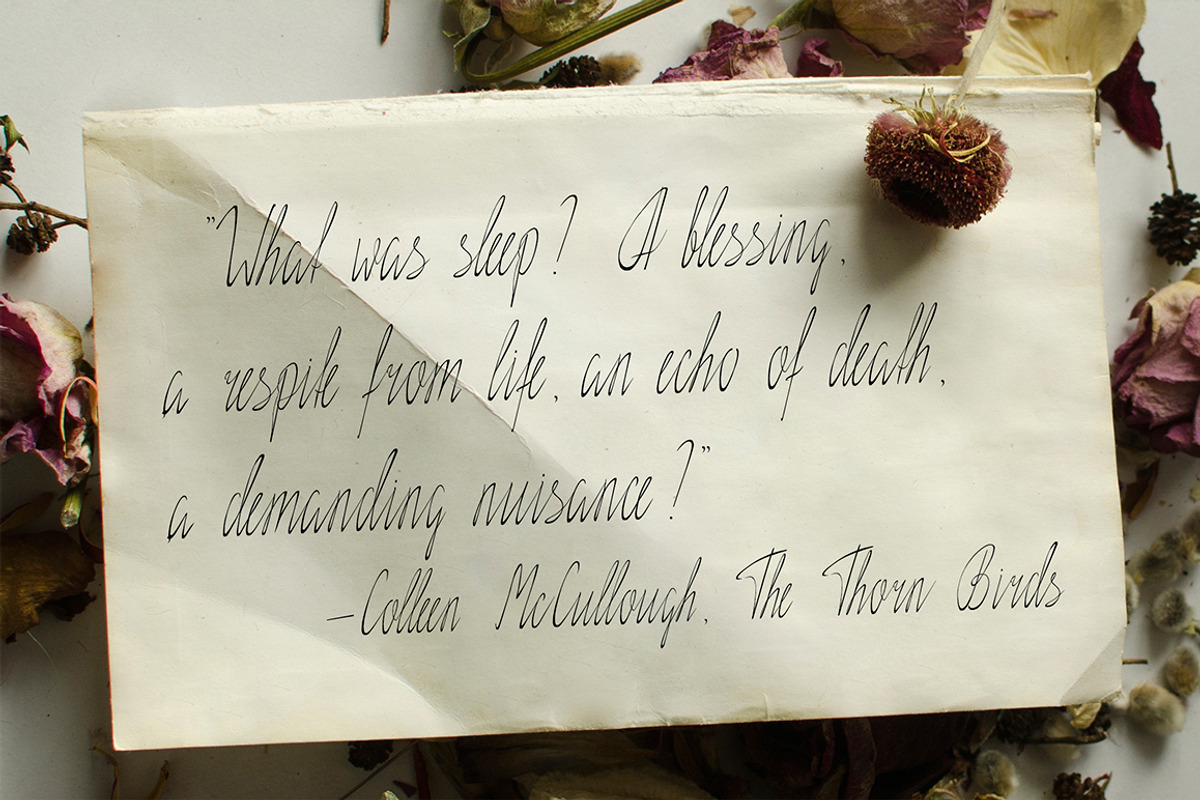 "What was sleep? A blessing,
a respite from life, an echo of death,
a demanding nuisance?"
–Colleen McCullough, The Thorn Birds